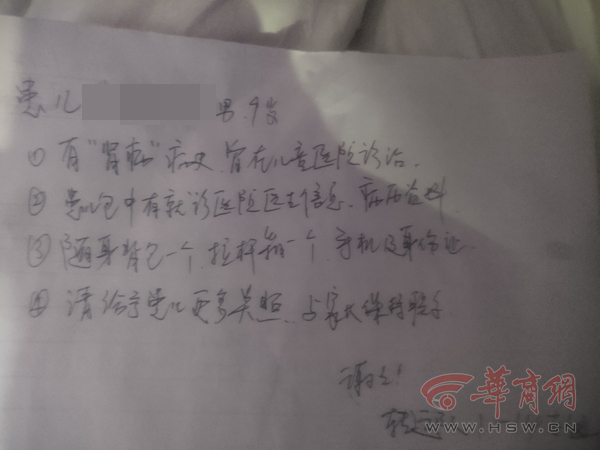 患儿 男.9岁
① 有“肾病”病史,曾在儿童医院诊治.
② 患儿包中有就诊医院医生信息、病历资料
③ 随身背包一个,拉杆箱一个,手机及身份证.
④ 请给予患儿更多关照,与家长保持联系
谢谢!
转运
华商网
WWW.HSW.CN